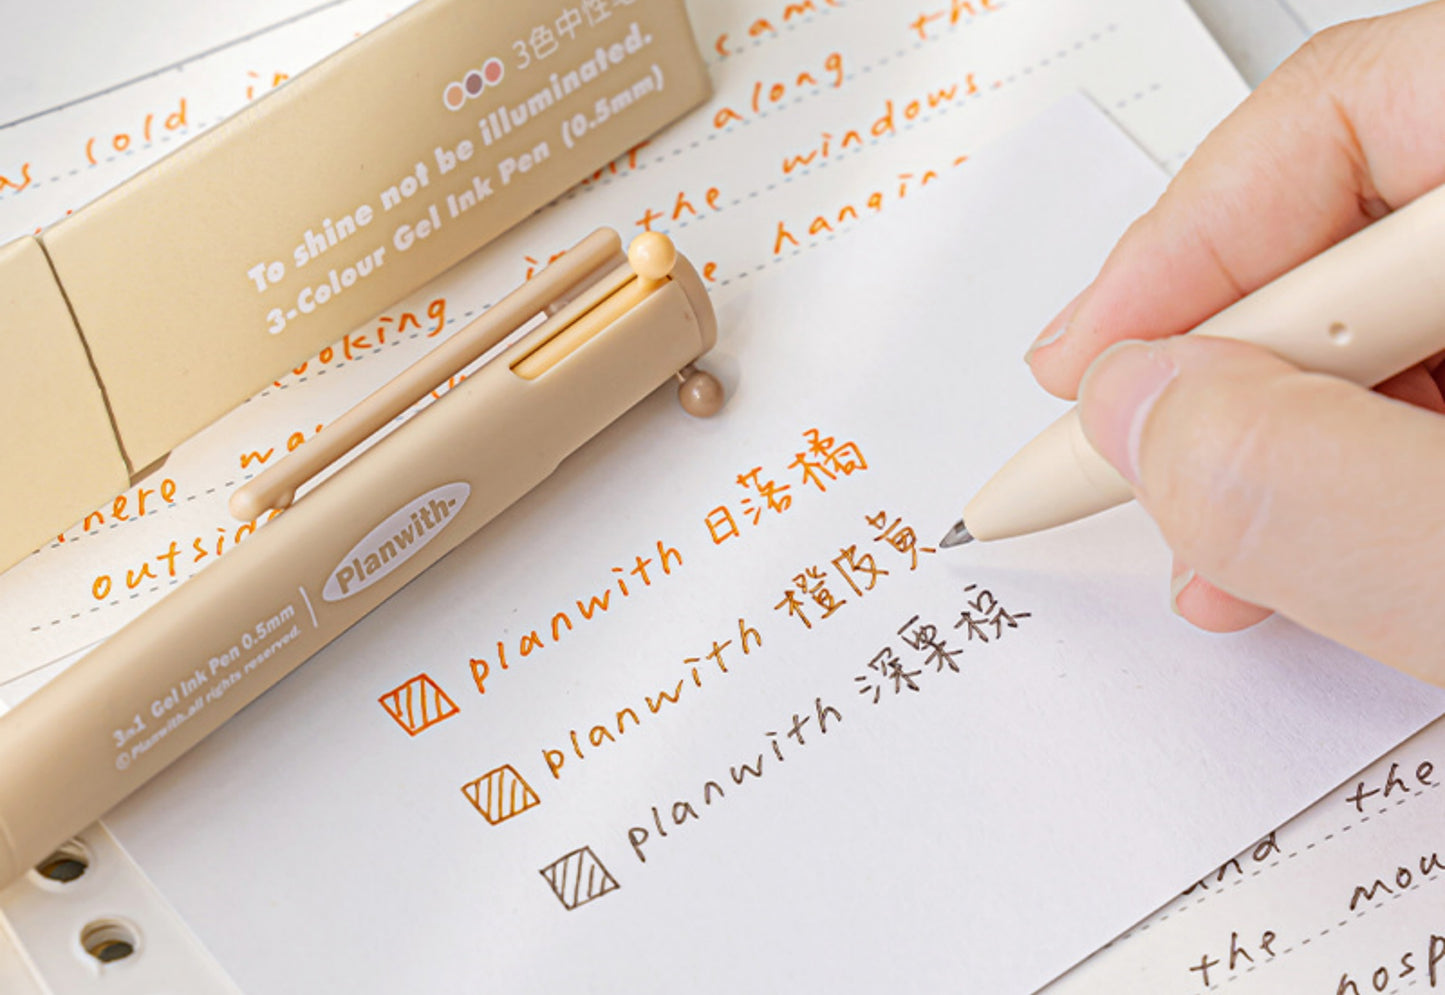 came
as cold in
along the
windows.
3色中性笔
To shine not be illuminated.
3-Colour Gel Ink Pen (0.5mm)
in the
hanging
looking in
was
here
outside
Planwith
3in1 Gel Ink Pen 0.5mm
©Planwith.all rights reserved.
planwith 日落橘
planwith 橙皮黄
planwith 深栗棕
the
and
mou
the
hosp